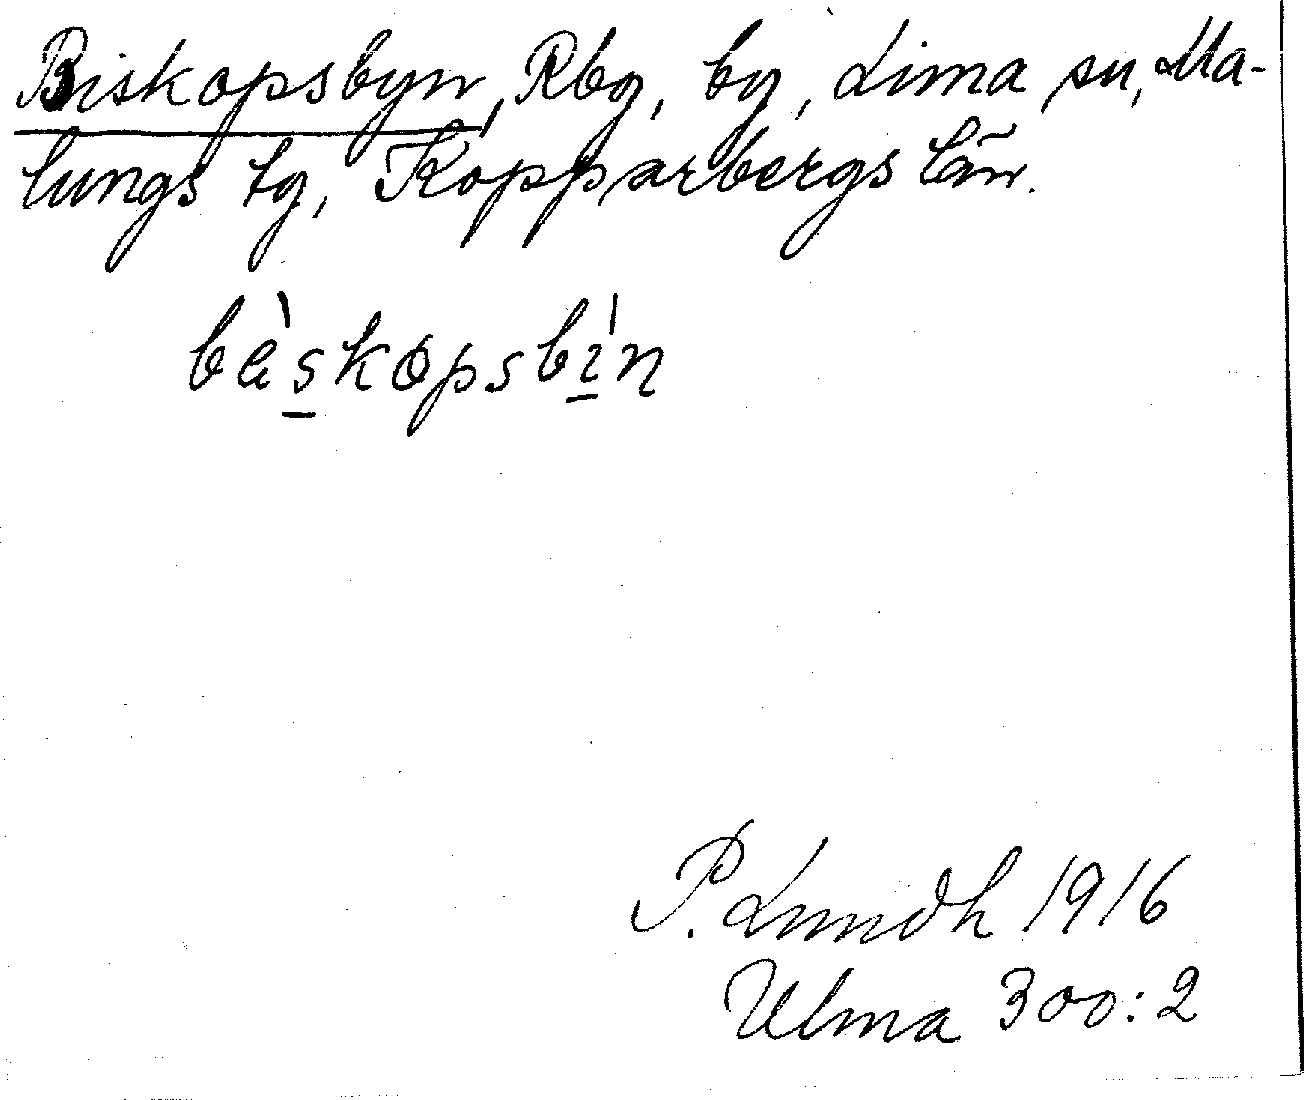 Biskopsbyn, Rbg, by, Lima sn, Ma-
lungs tg, Kopparbergs län.
bèskopsbı̍n
P. Lundh 1916
Ulma 300:2